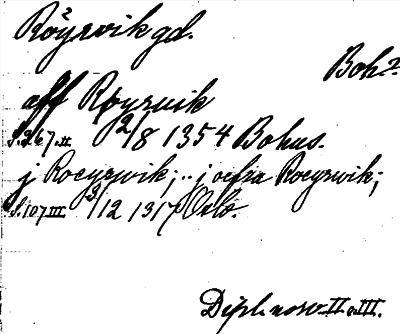 Röyrvik gd.
Boh?
aff Røyrvik
S. 267. II. 2/8 1354 Bohus.
j Roeyrwik; .. j oefra Roeyrwik;
S. 107 III 3/12 1317 Oslo.
Dipl. norv. II o. III.